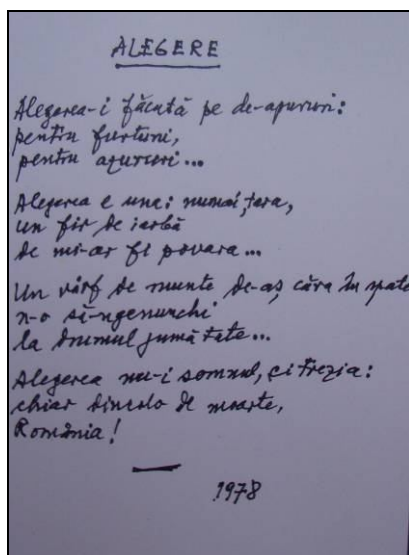 ALEGERE
Alegerea-i făcută pe de-apururi:
pentru furtuni,
pentru azururi...
Alegerea e una: numai țara,
un fir de iarbă
de mi-ar fi povara...
Un vârf de munte de-aș căra în spate
n-o să-ngenunchi
la drumul jumătate...
Alegerea nu-i somnul, ci trezia:
chiar dincolo de moarte,
România!
1978